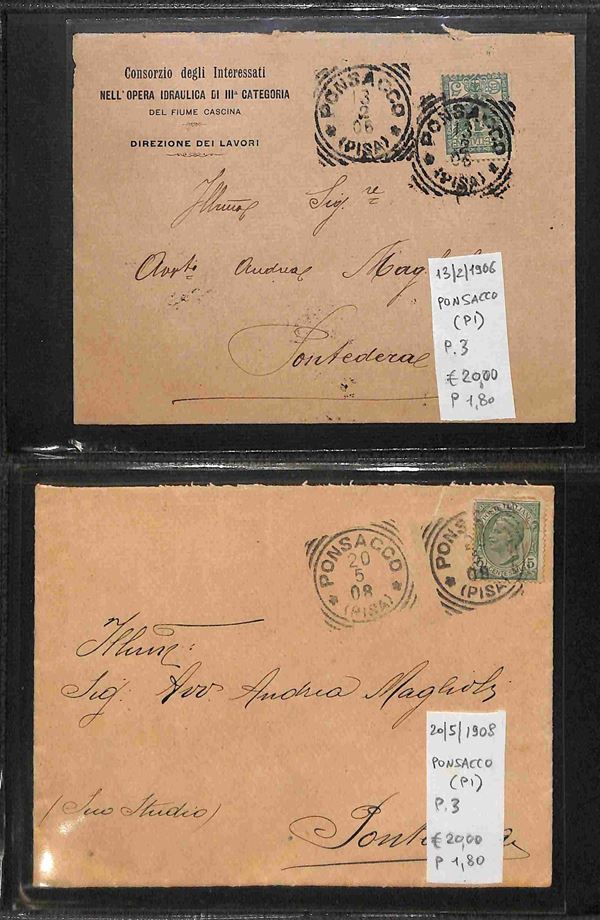 Consorzio degli Interessati
NELL'OPERA IDRAULICA DI IIIª CATEGORIA
DEL FIUME CASCINA
DIREZIONE DEI LAVORI
PONSACCO
13
2
06
(PISA)
PONSACCO
06
(PISA)
Illmo Sig.re
Avvto Andrea
Pontedera
13/2/1906
PONSACCO
(PI)
P.3
€ 20,00
P 1,80
PONSACCO
20
5
08
(PISA)
PONSACCO
08
(PISA)
5
Illmo:
Sig. Avv Andrea Maglioli
(Suo Studio)
20/5/1908
PONSACCO
(PI)
P.3
€ 20,00
P 1,80